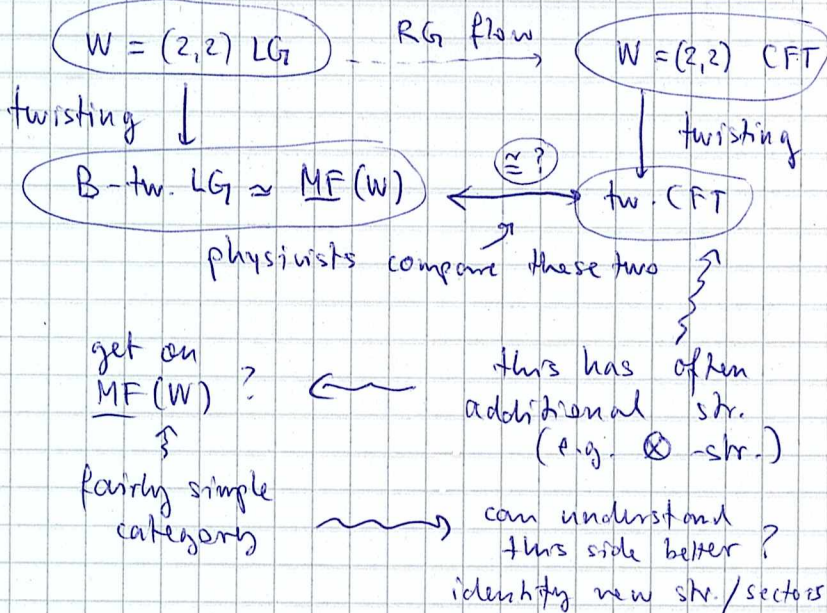 W = (2,2) LG
RG flow
W = (2,2) CFT
twisting
twisting
B-tw. LG ≃ MF(W)
≅ ?
tw. CFT
physicists compare these two
get on
MF(W) ?
this has often
additional str.
(e.g. ⊗ -str.)
fairly simple
category
can understand
this side better ?
identify new str./sectors